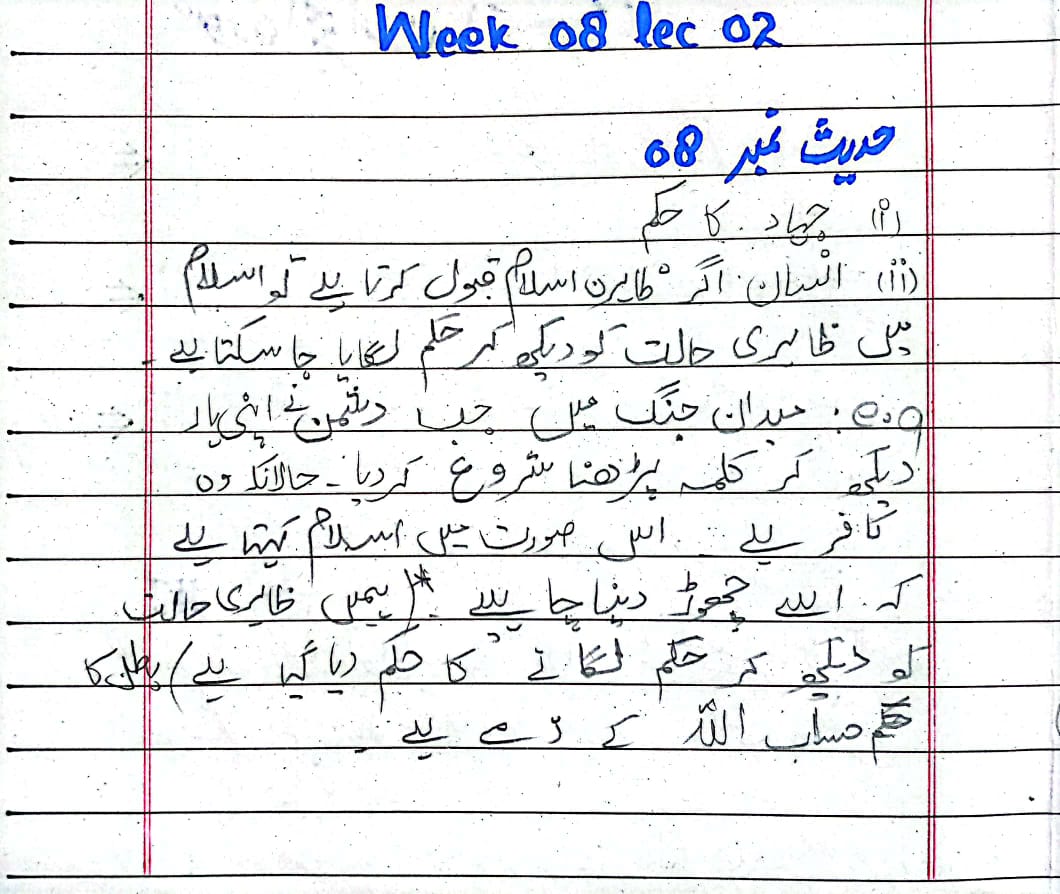 Week 08 lec 02
حدیث نمبر 08
(i) جہاد کا حکم
(ii) انسان اگر ظاہرن اسلام قبول کرتا ہے تو اسلام
میں ظاہری حالت کو دیکھ کر حکم لگایا جا سکتا ہے۔
e.g: میدان جنگ میں جب دشمن نے اپنی ہار
دیکھ کر کلمہ پڑھنا شروع کر دیا۔ حالانکہ وہ
کافر ہے اس صورت میں اسلام کہتا ہے
کہ اسے چھوڑ دینا چاہیے۔ *(ہمیں ظاہری حالت
کو دیکھ کر حکم لگانے کا حکم دیا گیا ہے) باطن کا
حساب اللہ کے ذمے ہے۔